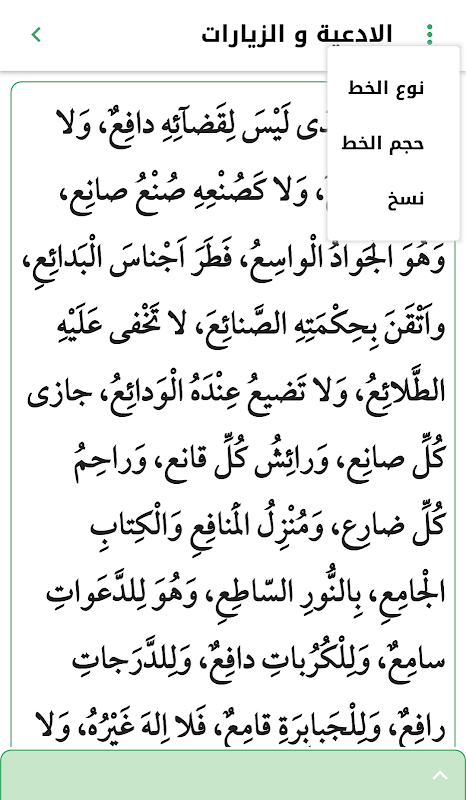 الادعية و الزيارات
نوع الخط
حجم الخط
نسخ
لَيْسَ لِقَضآئِهِ دافِعٌ، وَلا
وَلا كَصُنْعِهِ صُنْعُ صانِع،
وَهُوَ الْجَوادُ الْواسِعُ، فَطَرَ اَجْناسَ الْبَدائِعِ،
واَتْقَنَ بِحِكْمَتِهِ الصَّنائِعَ، لا تَخْفى عَلَيْهِ
الطَّلائِعُ، وَلا تَضيعُ عِنْدَهُ الْوَدائِعُ، جازى
كُلِّ صانِع، وَرائِشُ كُلِّ قانع، وَراحِمُ
كُلِّ ضارِع، وَمُنْزِلُ الْمَنافِعِ وَالْكِتابِ
الْجامِعِ، بِالنُّورِ السّاطِعِ، وَهُوَ لِلدَّعَواتِ
سامِعٌ، وَلِلْكُرُباتِ دافِعٌ، وَلِلدَّرَجاتِ
رافِعٌ، وَلِلْجَبابِرَةِ قامِعٌ، فَلا اِلهَ غَيْرُهُ، وَلا